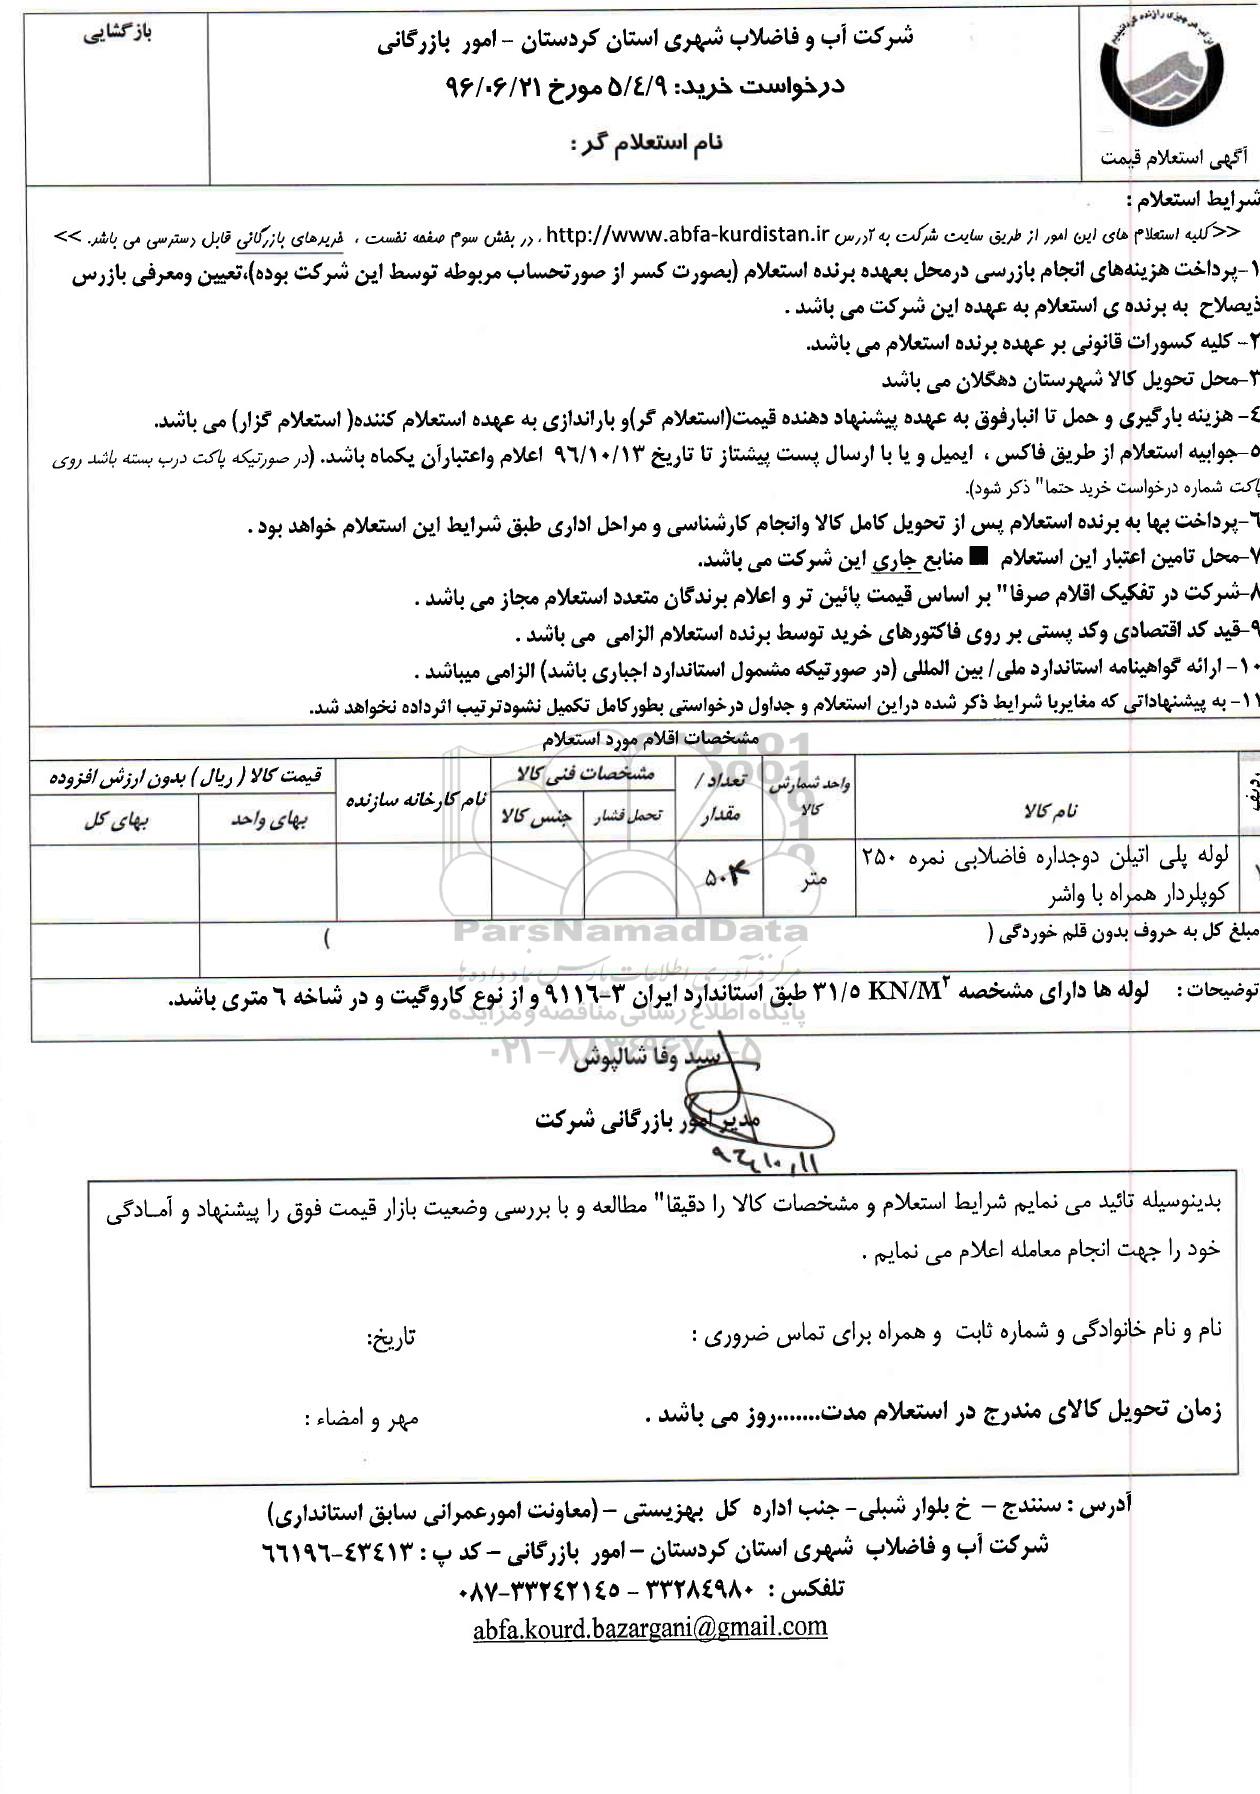 بازگشایی
شرکت آب و فاضلاب شهری استان کردستان – امور بازرگانی
درخواست خرید: ۵/۴/۹ مورخ ۹۶/۰۶/۲۱
نام استعلام گر :
آگهی استعلام قیمت
شرایط استعلام :
<<کلیه استعلام های این امور از طریق سایت شرکت به آدرس http://www.abfa-kurdistan.ir ، در بخش سوم صفحه نخست ، خریدهای بازرگانی قابل دسترسی می باشد. >>
۱-پرداخت هزینه‌های انجام بازرسی درمحل بعهده برنده استعلام (بصورت کسر از صورتحساب مربوطه توسط این شرکت بوده)،تعیین ومعرفی بازرس
ذیصلاح به برنده ی استعلام به عهده این شرکت می باشد .
۲- کلیه کسورات قانونی بر عهده برنده استعلام می باشد.
۳-محل تحویل کالا شهرستان دهگلان می باشد
۴- هزینه بارگیری و حمل تا انبارفوق به عهده پیشنهاد دهنده قیمت(استعلام گر)و باراندازی به عهده استعلام کننده( استعلام گزار) می باشد.
۵-جوابیه استعلام از طریق فاکس ، ایمیل و یا با ارسال پست پیشتاز تا تاریخ ۹۶/۱۰/۱۳ اعلام واعتبارآن یکماه باشد. (در صورتیکه پاکت درب بسته باشد روی
پاکت شماره درخواست خرید حتما" ذکر شود).
۶-پرداخت بها به برنده استعلام پس از تحویل کامل کالا وانجام کارشناسی و مراحل اداری طبق شرایط این استعلام خواهد بود .
۷-محل تامین اعتبار این استعلام ■ منابع جاری این شرکت می باشد.
۸-شرکت در تفکیک اقلام صرفا" بر اساس قیمت پائین تر و اعلام برندگان متعدد استعلام مجاز می باشد .
۹-قید کد اقتصادی وکد پستی بر روی فاکتورهای خرید توسط برنده استعلام الزامی می باشد .
۱۰- ارائه گواهینامه استاندارد ملی/ بین المللی (در صورتیکه مشمول استاندارد اجباری باشد) الزامی میباشد .
۱۱- به پیشنهاداتی که مغایربا شرایط ذکر شده دراین استعلام و جداول درخواستی بطورکامل تکمیل نشودترتیب اثرداده نخواهد شد.
مشخصات اقلام مورد استعلام
ردیف نام کالا واحد شمارش کالا تعداد / مقدار مشخصات فنی کالا نام کارخانه سازنده قیمت کالا ( ریال ) بدون ارزش افزوده
تحمل فشار جنس کالا بهای واحد بهای کل
۱ لوله پلی اتیلن دوجداره فاضلابی نمره ۲۵۰ متر ۵۰۴
کوپلردار همراه با واشر
مبلغ کل به حروف بدون قلم خوردگی ( )
ParsNamadData
مرکز فرآوری اطلاعات پارس نماد داده ها
توضیحات : لوله ها دارای مشخصه ۳۱/۵ KN/M² طبق استاندارد ایران ۳-۹۱۱۶ و از نوع کاروگیت و در شاخه ۶ متری باشد.
پایگاه اطلاع رسانی مناقصه و مزایده
۰۲۱-۸۸۳۴۹۶۷۰-۵
سید وفا شالپوش
مدیر امور بازرگانی شرکت
بدینوسیله تائید می نمایم شرایط استعلام و مشخصات کالا را دقیقا" مطالعه و با بررسی وضعیت بازار قیمت فوق را پیشنهاد و آمـادگی
خود را جهت انجام معامله اعلام می نمایم .
نام و نام خانوادگی و شماره ثابت و همراه برای تماس ضروری : تاریخ:
زمان تحویل کالای مندرج در استعلام مدت.......روز می باشد . مهر و امضاء :
آدرس : سنندج – خ بلوار شبلی- جنب اداره کل بهزیستی – (معاونت امورعمرانی سابق استانداری)
شرکت آب و فاضلاب شهری استان کردستان – امور بازرگانی – کد پ : ۴۳۴۱۳-۶۶۱۹۶
تلفکس : ۳۳۲۸۴۹۸۰ - ۰۸۷-۳۳۲۴۲۱۴۵
abfa.kourd.bazargani@gmail.com